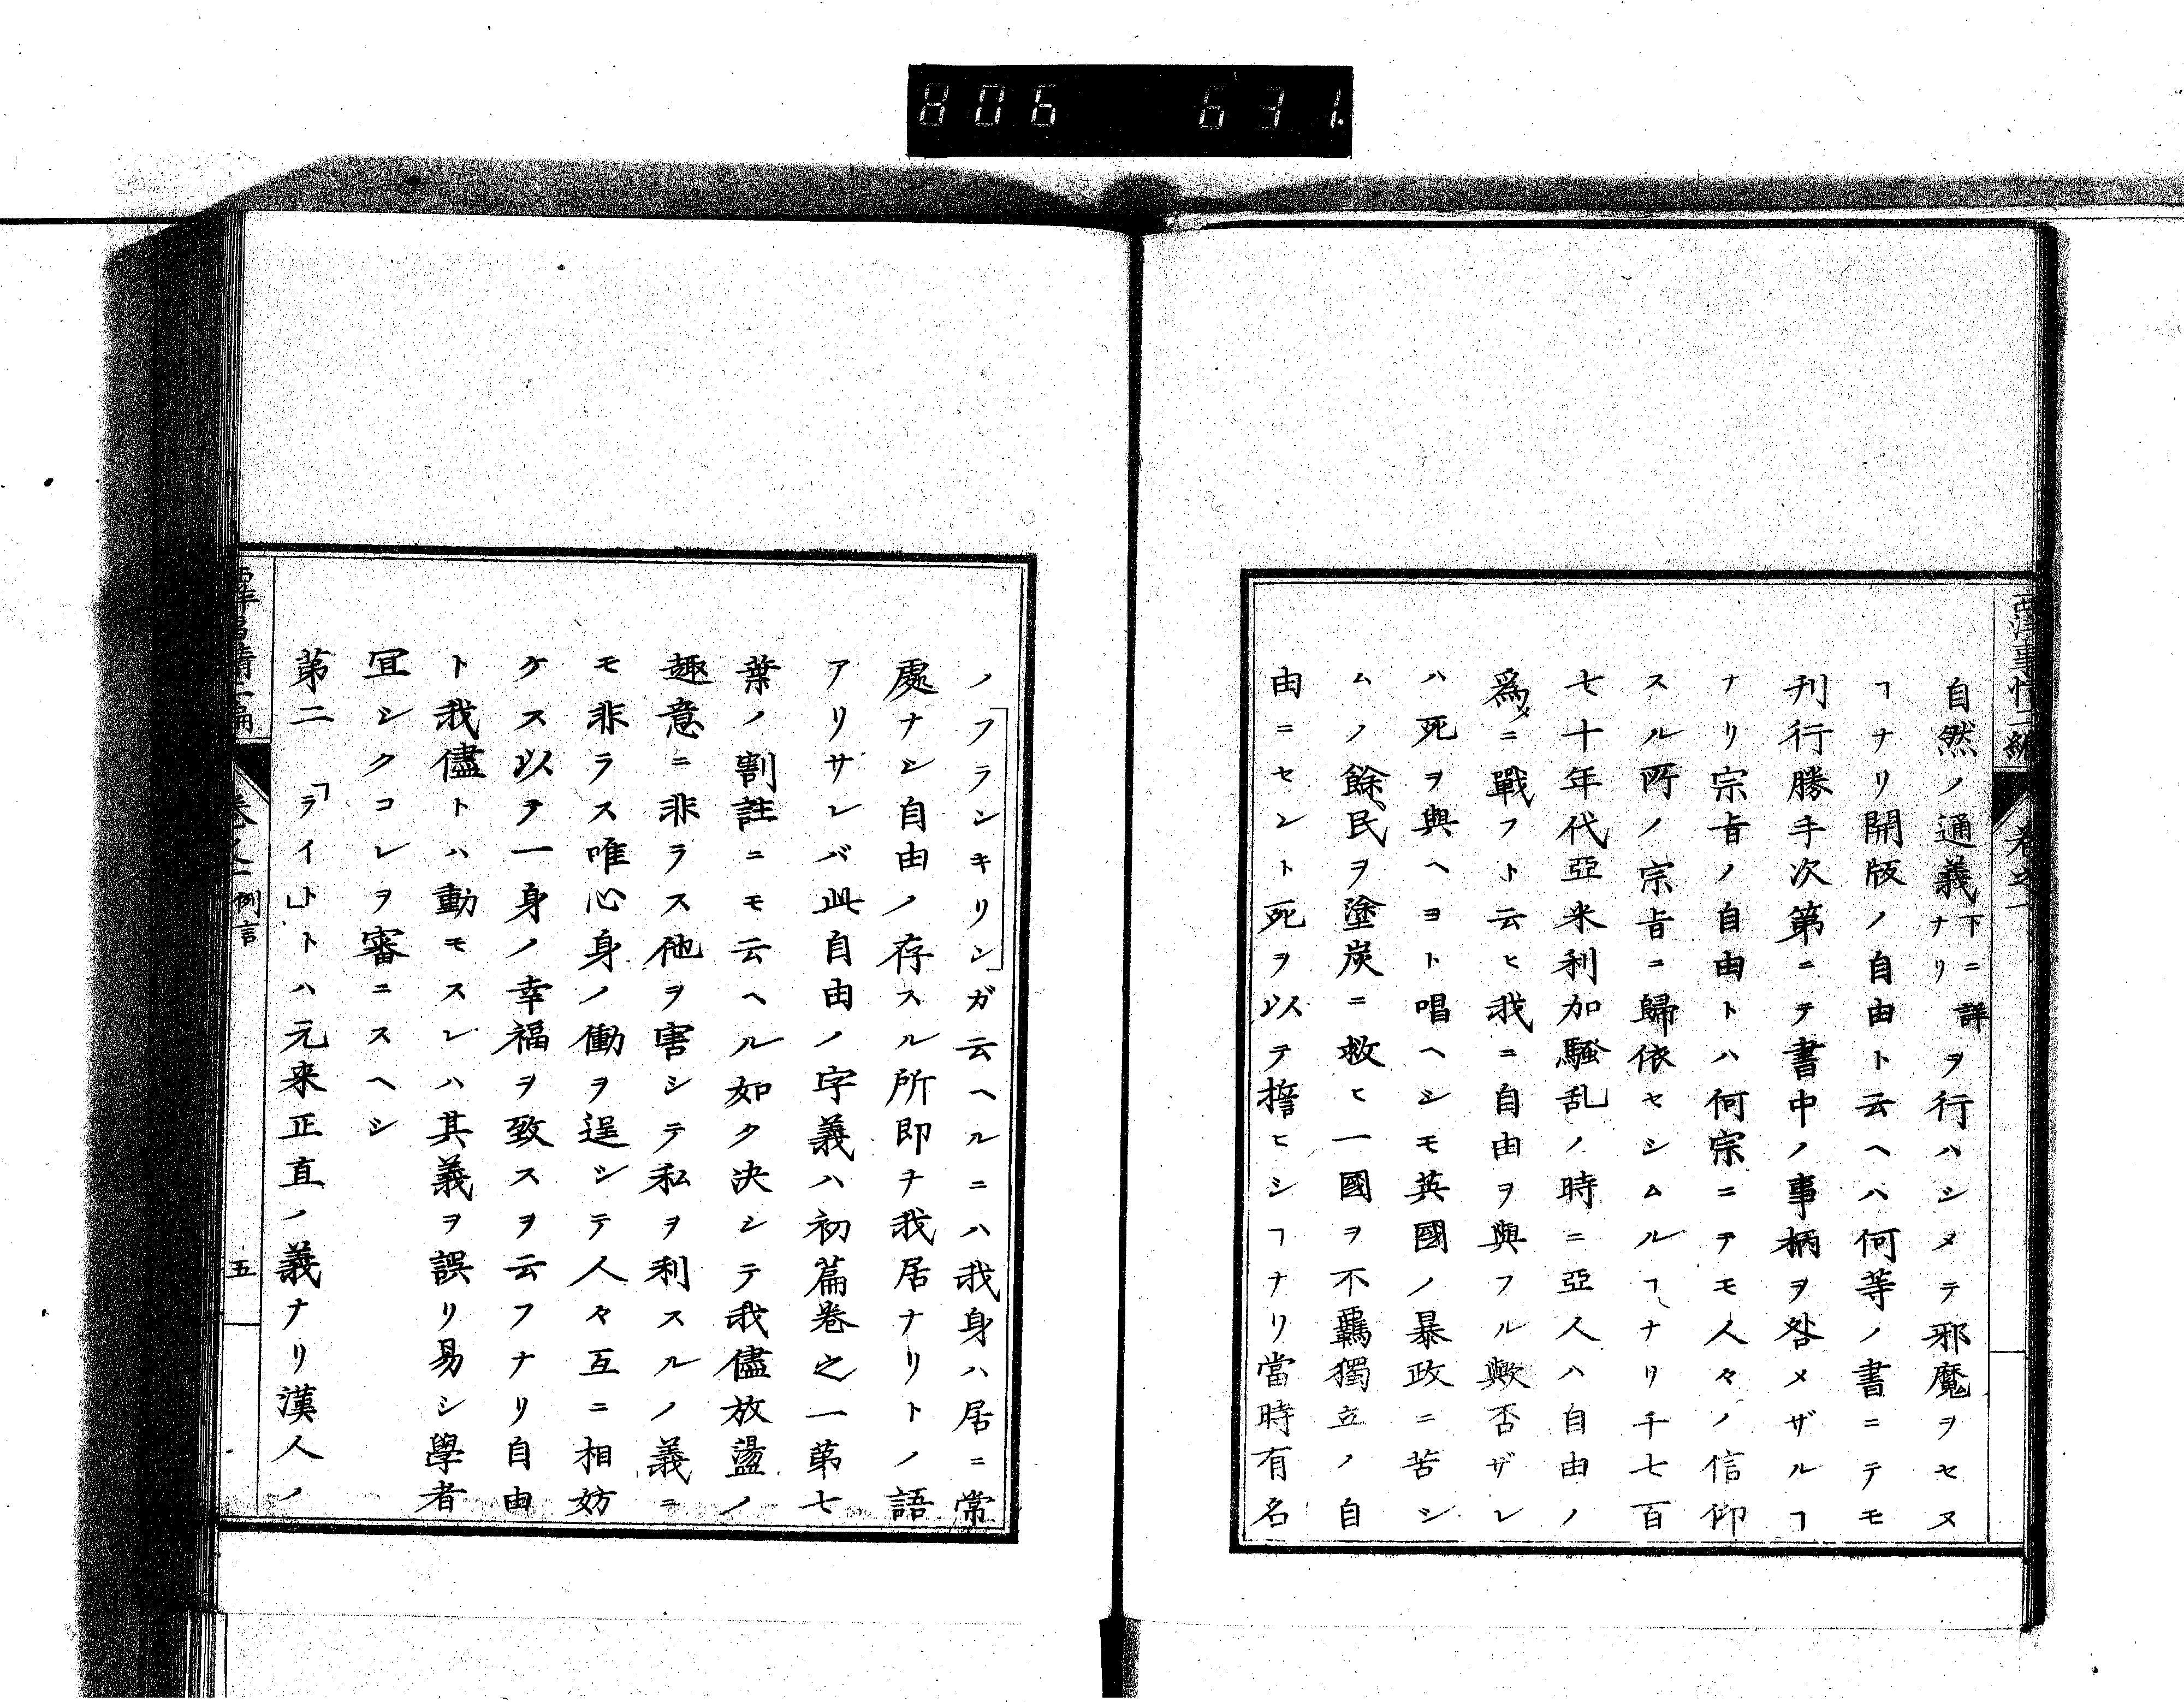 806 631.
西洋事情二編 卷之一
自然ノ通義ナリ下ニ詳ヲ行ハシメテ邪魔ヲセヌ
ヿナリ開版ノ自由ト云ヘハ何等ノ書ニテモ
刋行勝手次第ニテ書中ノ事柄ヲ咎メザルヿ
ナリ宗旨ノ自由トハ何宗ニテモ人々ノ信仰
スル所ノ宗旨ニ歸依セシムルヿナリ千七百
七十年代亞米利加騷乱ノ時ニ亞人ハ自由ノ
爲メニ戰フト云ヒ我ニ自由ヲ與フル歟否ザレ
ハ死ヲ與ヘヨト唱ヘシモ英國ノ暴政ニ苦シ
ムノ餘民ヲ塗炭ニ救ヒ一國ヲ不羈獨立ノ自
由ニセント死ヲ以テ誓ヒシヿナリ當時有名
ノ「フランキリン」ガ云ヘルニハ我身ハ居ニ常
處ナシ自由ノ存スル所即チ我居ナリトノ語
アリサレバ此自由ノ字義ハ初篇卷之一第七
葉ノ割註ニモ云ヘル如ク決シテ我儘放盪ノ
趣意ニ非ラス他ヲ害シテ私ヲ利スルノ義ニ
モ非ラス唯心身ノ働ヲ逞シテ人々互ニ相妨
ケス以テ一身ノ幸福ヲ致スヲ云フナリ自由
ト我儘トハ動モスレハ其義ヲ誤リ易シ學者
宜シクコレヲ審ニスヘシ
第二 「ライト」トハ元来正直ノ義ナリ漢人ノ
西洋事情二編 卷之一 例言 五